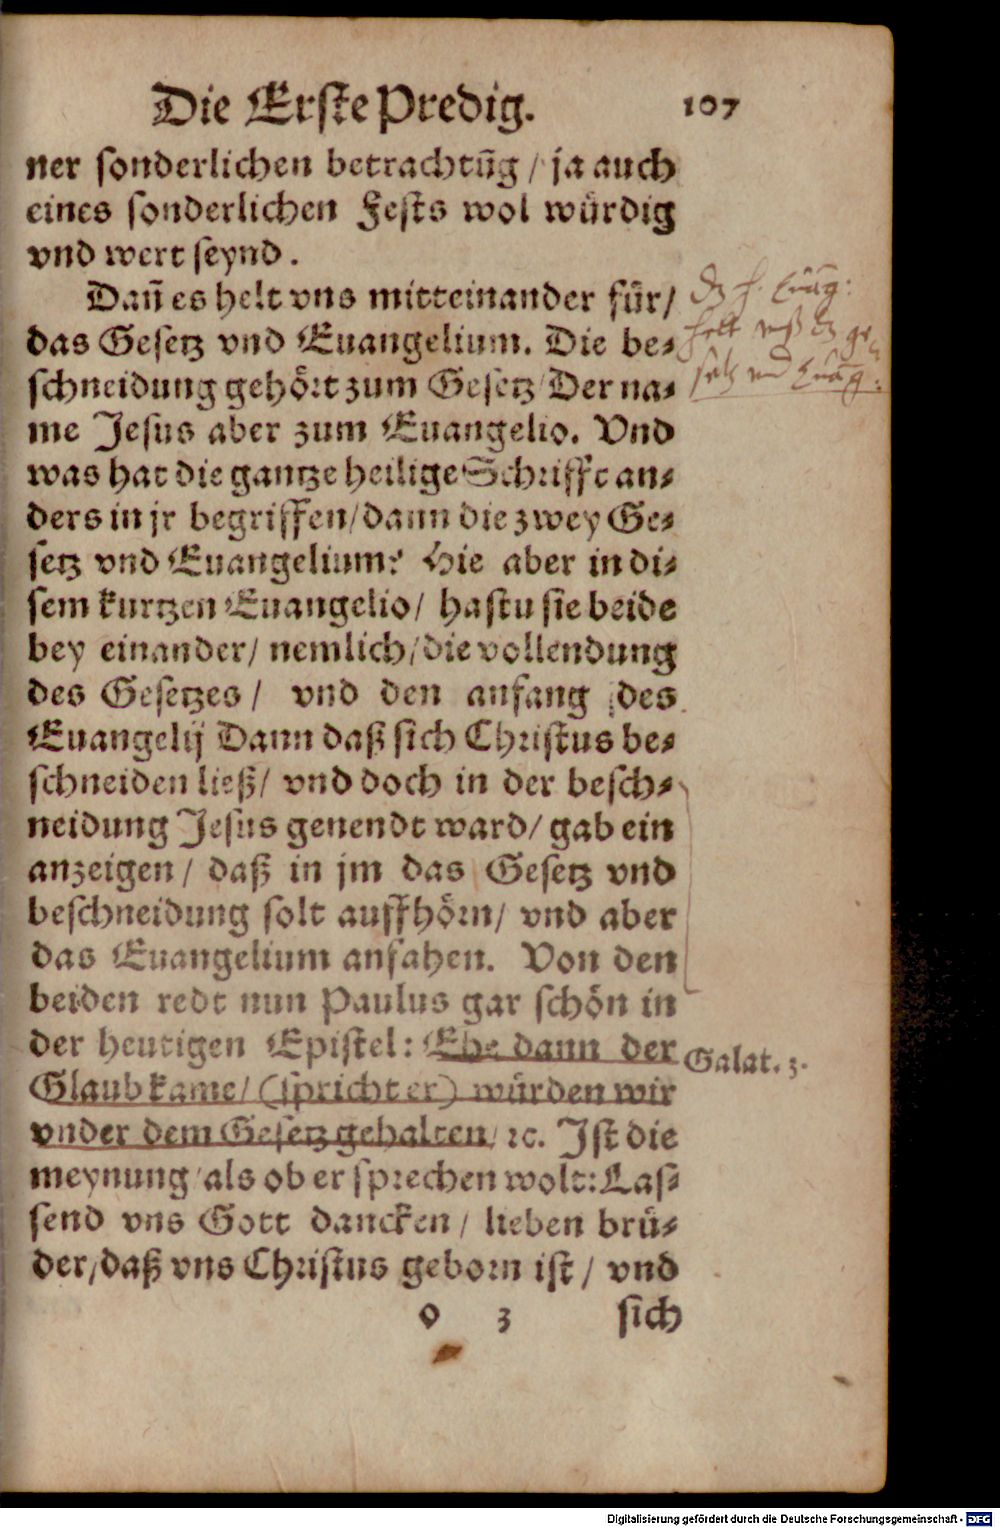 Die Erste Predig. 107
ner sonderlichen betrachtūg / ja auch
eines sonderlichen Fests wol würdig
vnd wert seynd.
Dañ es helt vns mitteinander für /
das Gesetz vnd Euangelium. Die be⸗
schneidung gehört zum Gesetz / Der na⸗
me Jesus aber zum Euangelio. Vnd
was hat die gantze heilige Schrifft an⸗
ders in jr begriffen / dann die zwey Ge⸗
setz vnd Euangelium? Hie aber in di⸗
sem kurtzen Euangelio / hastu sie beide
bey einander / nemlich / die vollendung
des Gesetzes / vnd den anfang des
Euangelij Dann daß sich Christus be⸗
schneiden ließ / vnd doch in der besch⸗
neidung Jesus genendt ward / gab ein
anzeigen / daß in jm das Gesetz vnd
beschneidung solt auffhörn / vnd aber
das Euangelium anfahen. Von den
beiden redt nun Paulus gar schön in
der heutigen Epistel: Ehe dann der
Galat. 3.
Glaub kame / (spricht er) würden wir
vnder dem Gesetz gehalten / ꝛc. Ist die
meynung / als ob er sprechen wolt: Las⸗
send vns Gott dancken / lieben brü⸗
der / daß vns Christus geborn ist / vnd
o 3 sich
Digitalisierung gefördert durch die Deutsche Forschungsgemeinschaft - DFG